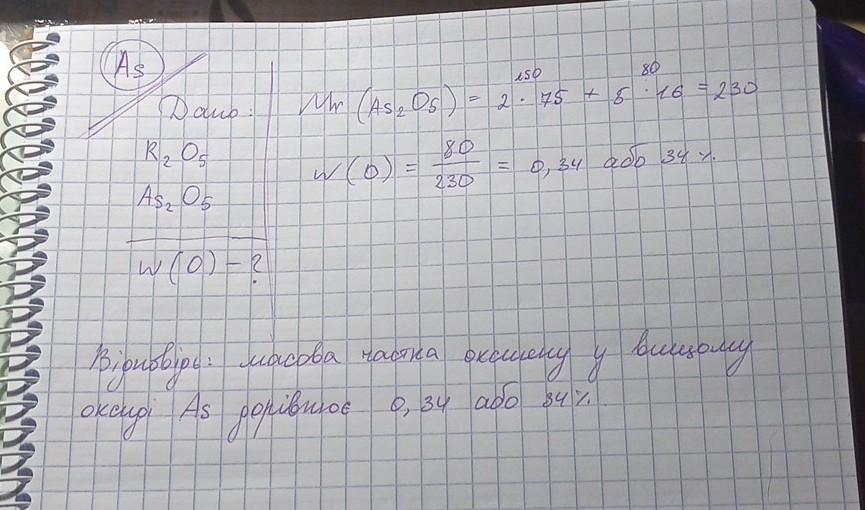 As
Дано:
R₂O₅
As₂O₅
w(O) - ?
150 80
Mr (As₂O₅) = 2 · 75 + 5 · 16 = 230
w(O) = 80/230 = 0,34 або 34 %.
Відповідь: масова частка оксигену у вищому
оксиді As дорівнює 0,34 або 34%.